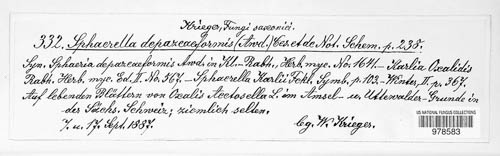 Krieger, Fungi saxonici.
332. Sphaerella depazeaeformis (Awd.) Ces. et de Not. Schem. p. 238.
Syn. Sphaeria depazeaeformis Awd. in Kl.-Rabh., Herb. myc. No. 1641. – Karlia Oxalidis
Rabh. Herb. myc. Ed. II. No. 567. – Sphaerella Karlii Fckl. Symb. p. 103. – Winter, II. p. 367.
Auf lebenden Blättern von Oxalis Acetosella L. im Amsel- u. Uttewalder-Grunde in
der Sächs. Schweiz; ziemlich selten.
7. u. 17. Sept. 1887. lg. W. Krieger.
US NATIONAL FUNGUS COLLECTIONS
978583